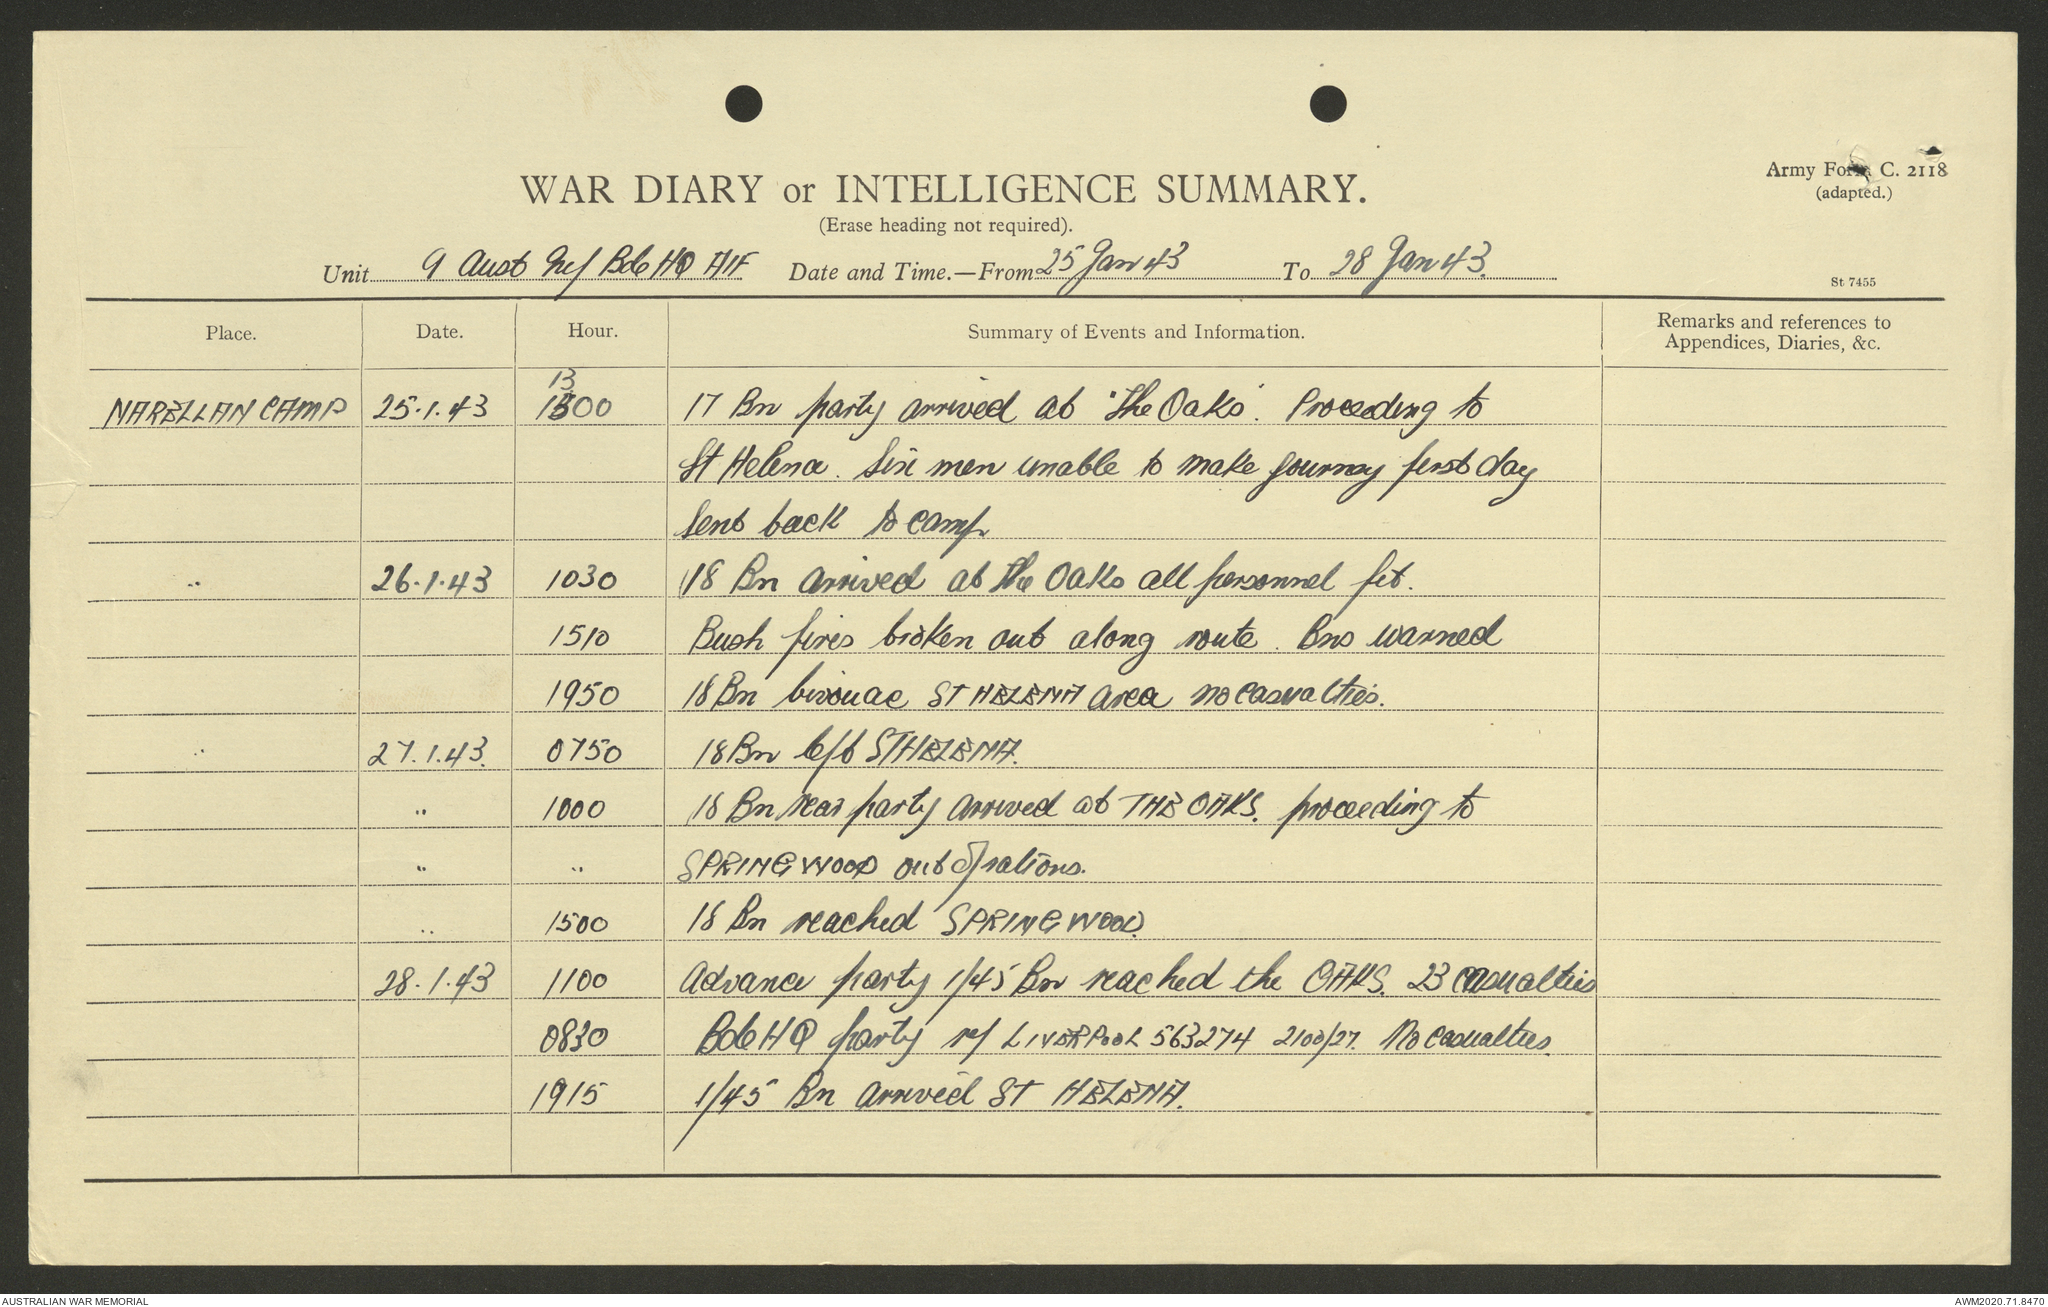 Army Form C. 2118
(adapted.)
WAR DIARY or INTELLIGENCE SUMMARY.
(Erase heading not required).
Unit 9 Aust Inf Bde HQ AIF Date and Time.—From 25 Jan 43 To 28 Jan 43.
St 7455
Place. Date. Hour. Summary of Events and Information. Remarks and references to
Appendices, Diaries, &c.
13
NARELLAN CAMP 25.1.43 1500 17 Bn party arrived at "The Oaks". Proceeding to
St Helena. Six men unable to make journey first day
sent back to camp
" 26.1.43 1030 18 Bn arrived at The Oaks all personnel fit.
1510 Bush fires broken out along route. Bns warned
1950 18 Bn bivouac ST HELENA area no casualties.
" 27.1.43. 0750 18 Bn left ST HELENA.
" 1000 18 Bn rear party arrived at THE OAKS. proceeding to
" " SPRINGWOOD out of rations.
" 1500 18 Bn reached SPRINGWOOD.
28.1.43 1100 Advance party 1/45 Bn reached the OAKS. 23 casualties
0830 Bde HQ party rf LIVERPOOL 563274 2100/27. No casualties.
1915 1/45 Bn arrived ST HELENA.
AUSTRALIAN WAR MEMORIAL AWM2020.71.8470